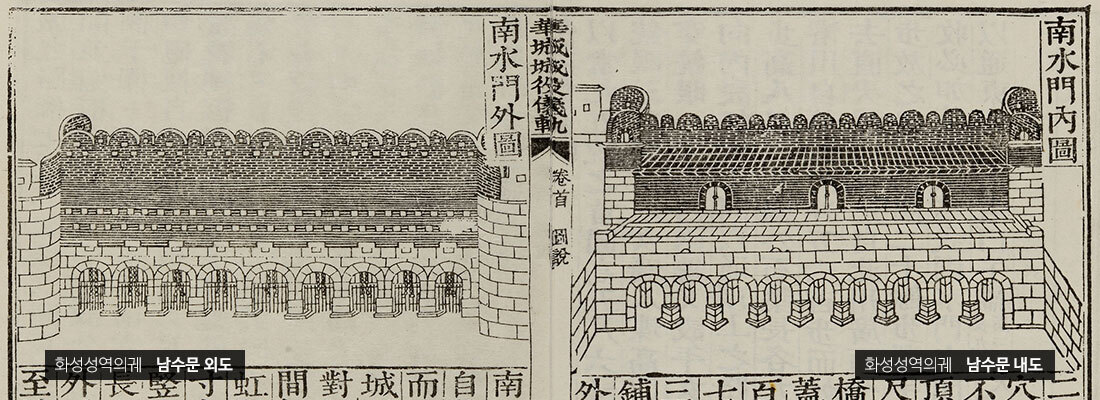 南水門內圖
二穴不頂尺橋蓋百七三鋪外
華城城役儀軌
卷首
圖說
南水門外圖
南自而城對間虹寸竪長外至
화성성역의궤 남수문 외도
화성성역의궤 남수문 내도